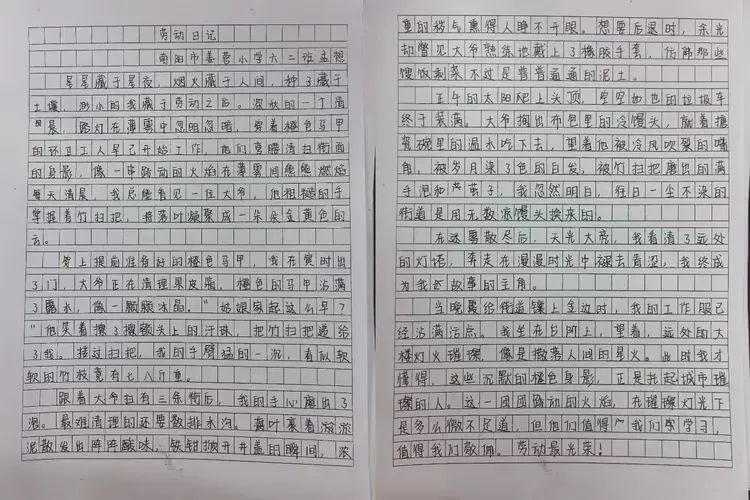 劳动日记
南阳市姜营小学六二班孟想
星星藏于星夜，烟火藏于人间，种子藏于
土壤，渺小的我藏于劳动之后。深秋的一个清
晨，路灯在薄雾中忽明忽暗，穿着橙色马甲
的环卫工人早已开始工作，他们弯腰清扫街面
的身影，像一串跳动的火焰在薄雾间熊熊燃烧
每天清晨，我总能看见一位大爷，他粗糙的手
掌握着竹扫把，将落叶凝聚成一朵朵金黄色的
云。
穿上提前准备好的橙色马甲，我在寅时出
了门，大爷正在清理果皮箱，橙色的马甲沾满
了露水，像一颗颗冰晶。"姑娘家起这么早？
"他笑着擦了擦额头上的汗珠，把竹扫把递给
了我。接过扫把，我的手臂猛的一沉，看似软
软的竹枝竟有七八斤重。
跟着大爷扫有三条街后，我的手心磨出了
泡。最难清理的还要数排水沟。腐叶裹着淤
泥散发出阵阵酸味，铁钳掀开井盖的瞬间，浓
重的秽气熏得人睁不开眼。想要后退时，余光
却瞥见大爷熟练地戴上了橡胶手套，仿佛那些
馊饭剩菜不过是普普通通的泥土。
正午的太阳爬上头顶，空空如也的垃圾车
终于装满。大爷掏出布包里的冷馒头，就着搪
瓷碗里的温水吃下去，望着他被冷风吹裂的嘴
角，被岁月染了色的白发，被竹扫把磨出的满
手泥和茧子，我忽然明白，往日一尘不染的
街道是用无数凉馒头换来的。
在迷雾散尽后，天光大亮，我看清了远处
的灯塔，奔走在漫漫时光中褪去青涩，我终成
为我故事的主角。
当晚霞给街道镶上金边时，我的工作服已
经沾满污点。我坐在台阶上，望着，远处的大
楼灯火璀璨，像是撒落人间的星火。此时我才
懂得，这些沉默的橙色身影，正是托起城市璀
璨的人。这一团团跳动的火焰，在璀璨灯光下
是多么微不足道，但他们值得我们学习，
值得我们敬佩。劳动最光荣！